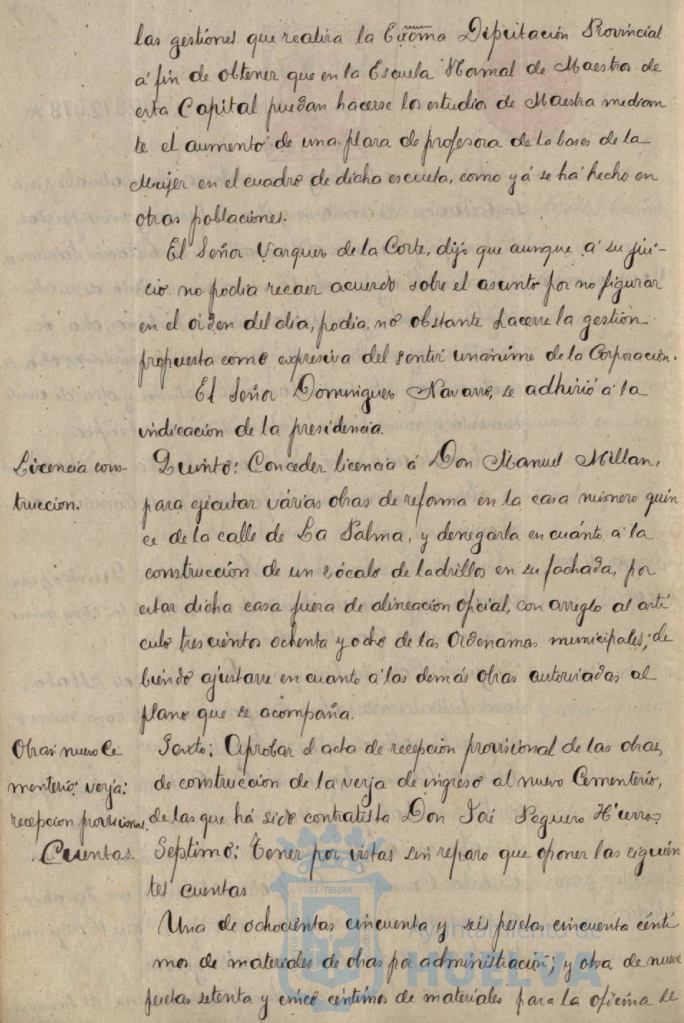 las gestiones que realiza la Excma Diputación Provincial
á fin de obtener que en la Escuela Normal de Maestros de
esta Capital puedan hacerse los estudios de Maestra median
te el aumento de una plaza de profesora de labores de la
Mujer en el cuadro de dicha escuela, como yá se há hecho en
otras poblaciones.
El Señor Vazquez de la Corte, dijo que aunque á su jui-
cio no podia recaer acuerdo sobre el asunto por no figurar
en el órden del dia, podia no obstante hacerse la gestión
propuesta como expresiva del sentir unánime de la Corporación.
El Señor Dominguez Navarro, se adhirió á la
indicación de la presidencia.
Licencia cons-
trucción.
Quinto: Conceder licencia á Don Manuel Millan,
para ejecutar várias obras de reforma en la casa número quin
ce de la calle de La Palma, y denegarla en cuánto á la
construcción de un zócalo de ladrillos en su fachada, por
estar dicha casa fuera de alineación oficial, con arreglo al artí
culo trescientos ochenta y ocho de las Ordenanzas municipales, de
biendo ajustarse en cuanto á las demás obras autorizadas al
plano que se acompaña.
Obras nuevo Ce
menterio: verja:
recepción provisional.
Sexto: Aprobar el acta de recepción provisional de las obras
de construcción de la verja de ingreso al nuevo Cementerio,
de las que há sido contratista Don José Peguero Hierro.
Cuentas.
Septimo: Tener por vistas sin reparo que oponer las siguien
tes cuentas
Una de ochocientas cincuenta y seis pesetas cincuenta cénti
mos de materiales de obras por administración; y otra de nueve
pesetas setenta y cinco céntimos de materiales para la oficina de
Ayuntamiento de
HUELVA